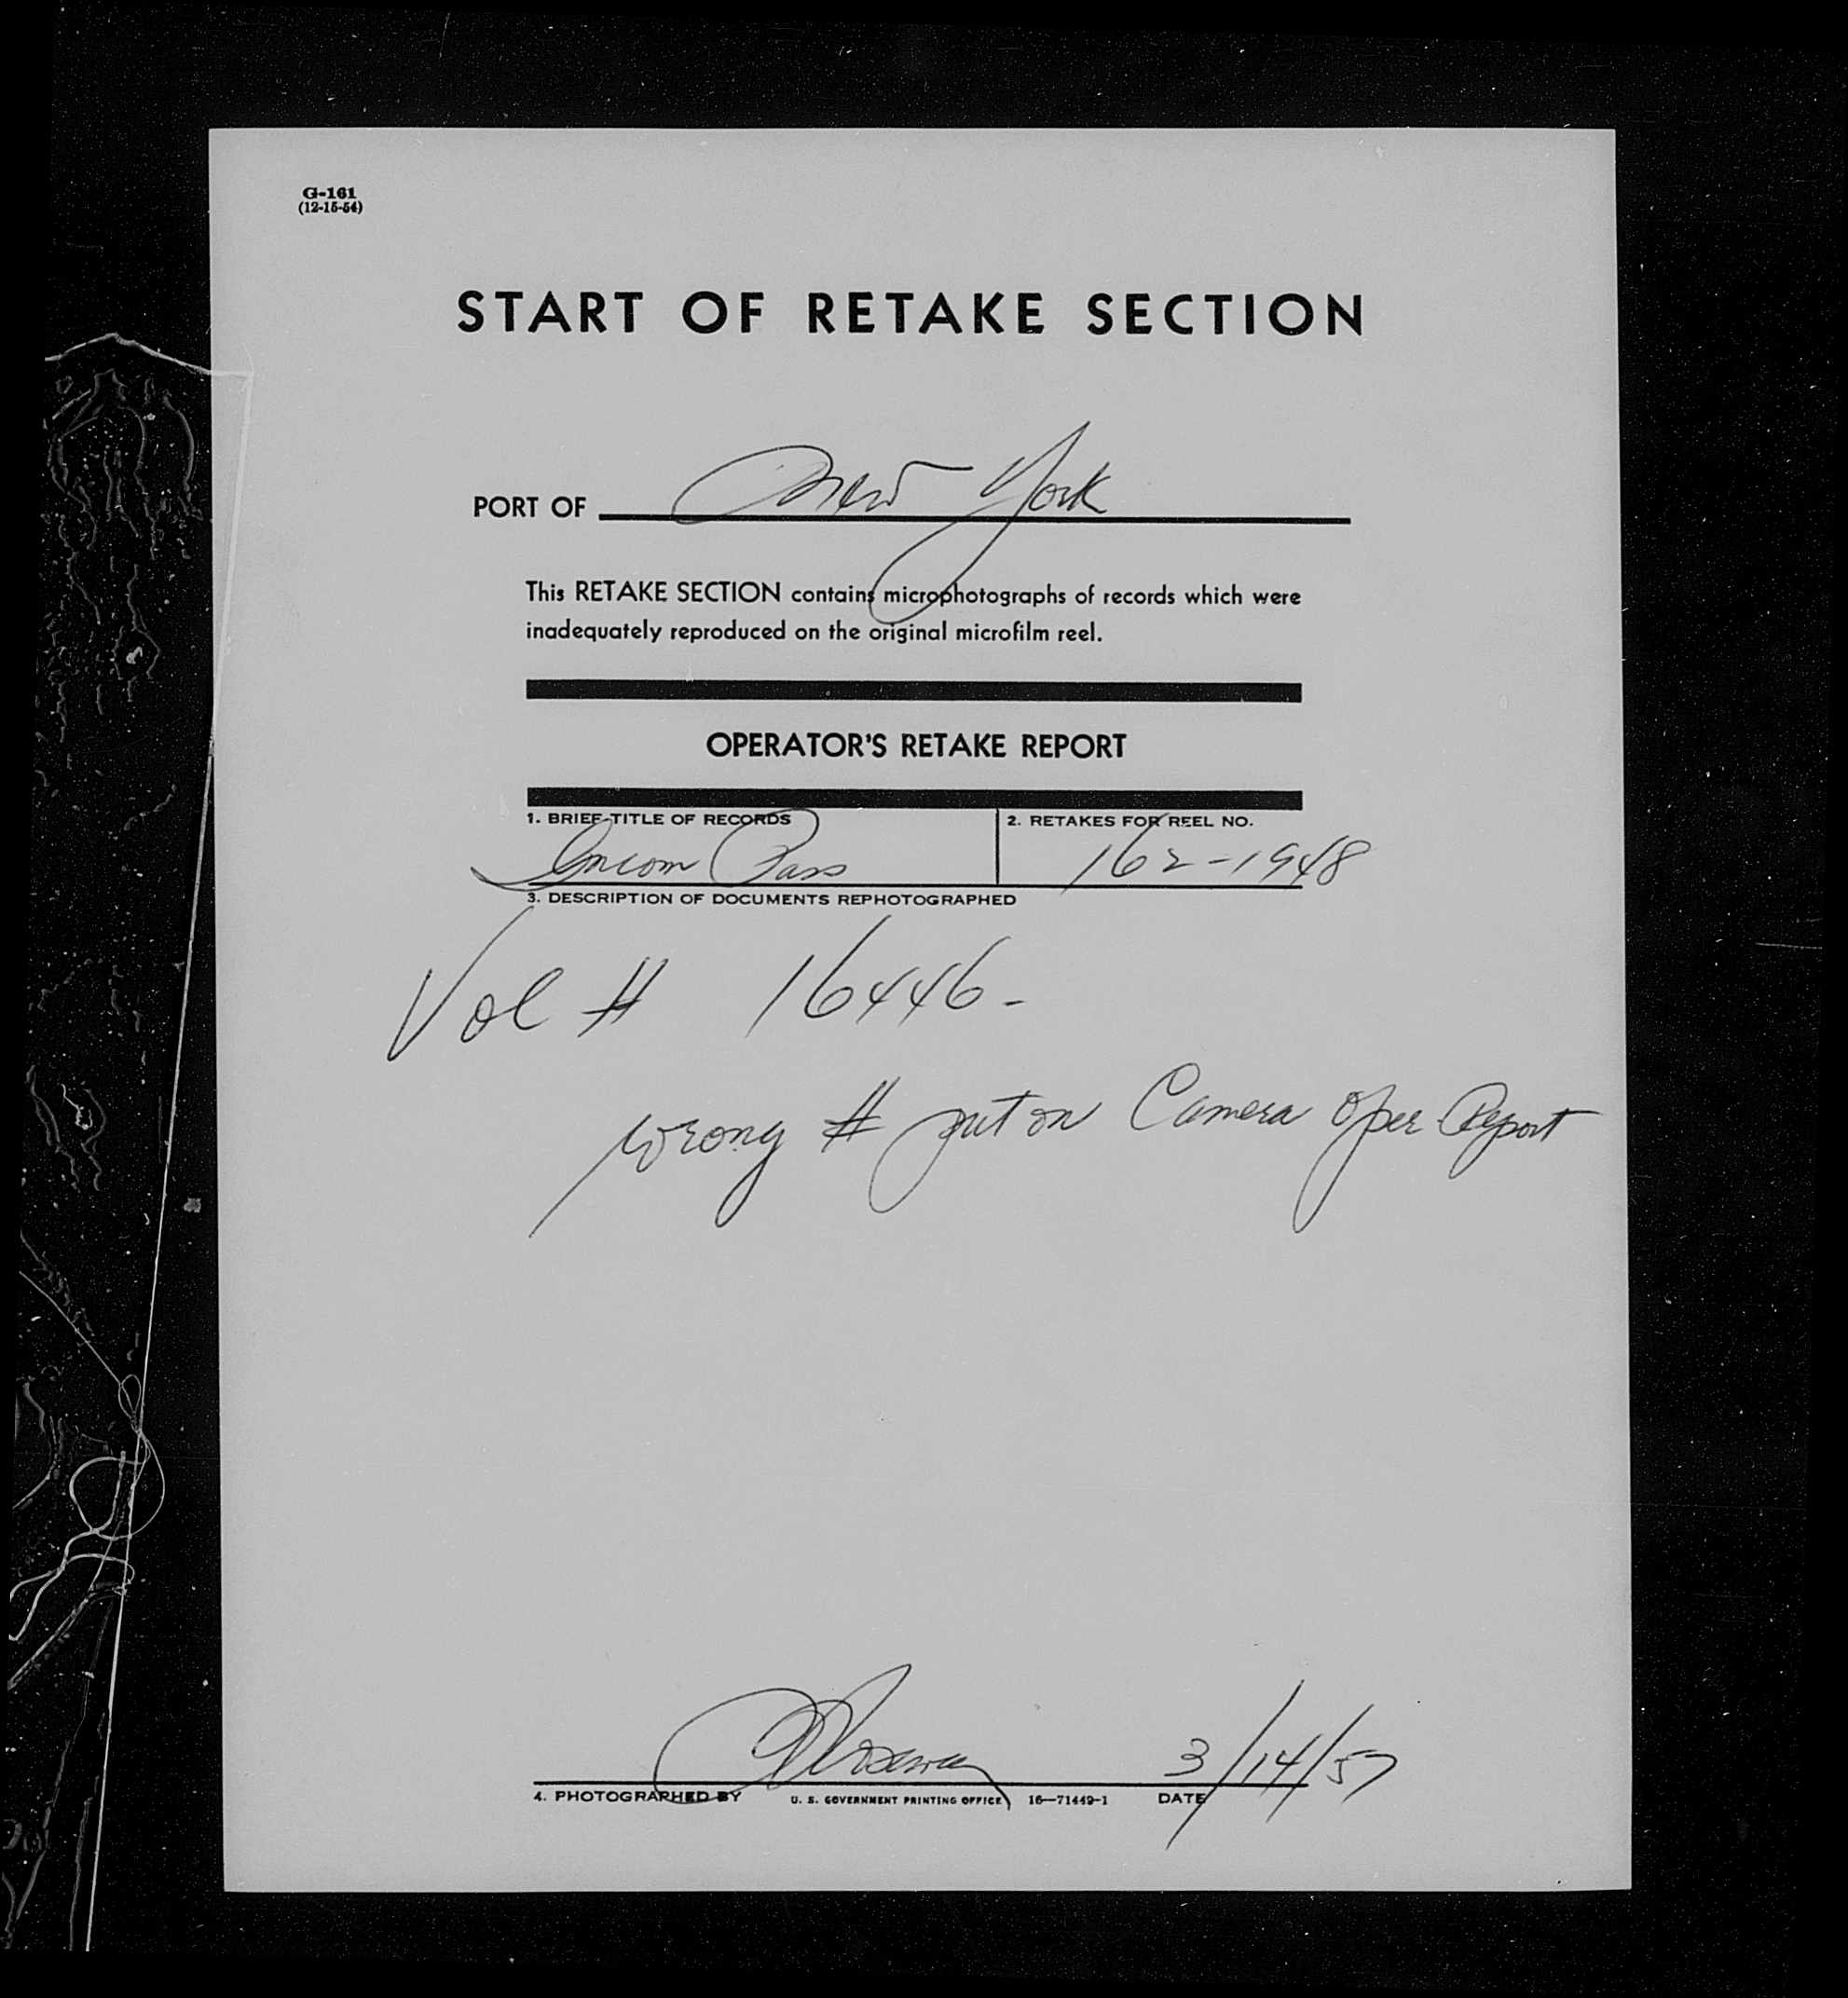 G-161
(12-15-54)
START OF RETAKE SECTION
PORT OF New York
This RETAKE SECTION contains microphotographs of records which were
inadequately reproduced on the original microfilm reel.
OPERATOR'S RETAKE REPORT
1. BRIEF TITLE OF RECORDS
2. RETAKES FOR REEL NO.
Incom Pass
162-1948
3. DESCRIPTION OF DOCUMENTS REPHOTOGRAPHED
Vol # 16446-
wrong # put on Camera Oper Report
3/14/57
4. PHOTOGRAPHED BY
U. S. GOVERNMENT PRINTING OFFICE 16—71449-1
DATE